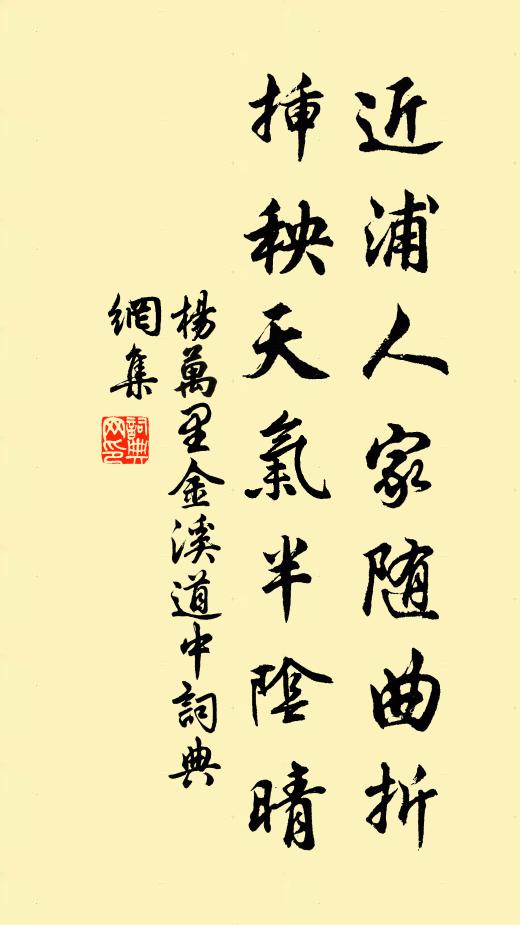 近浦人家随曲折
挿秧天氣半陰晴
楊萬里金溪道中詞典
網集
詞典網印